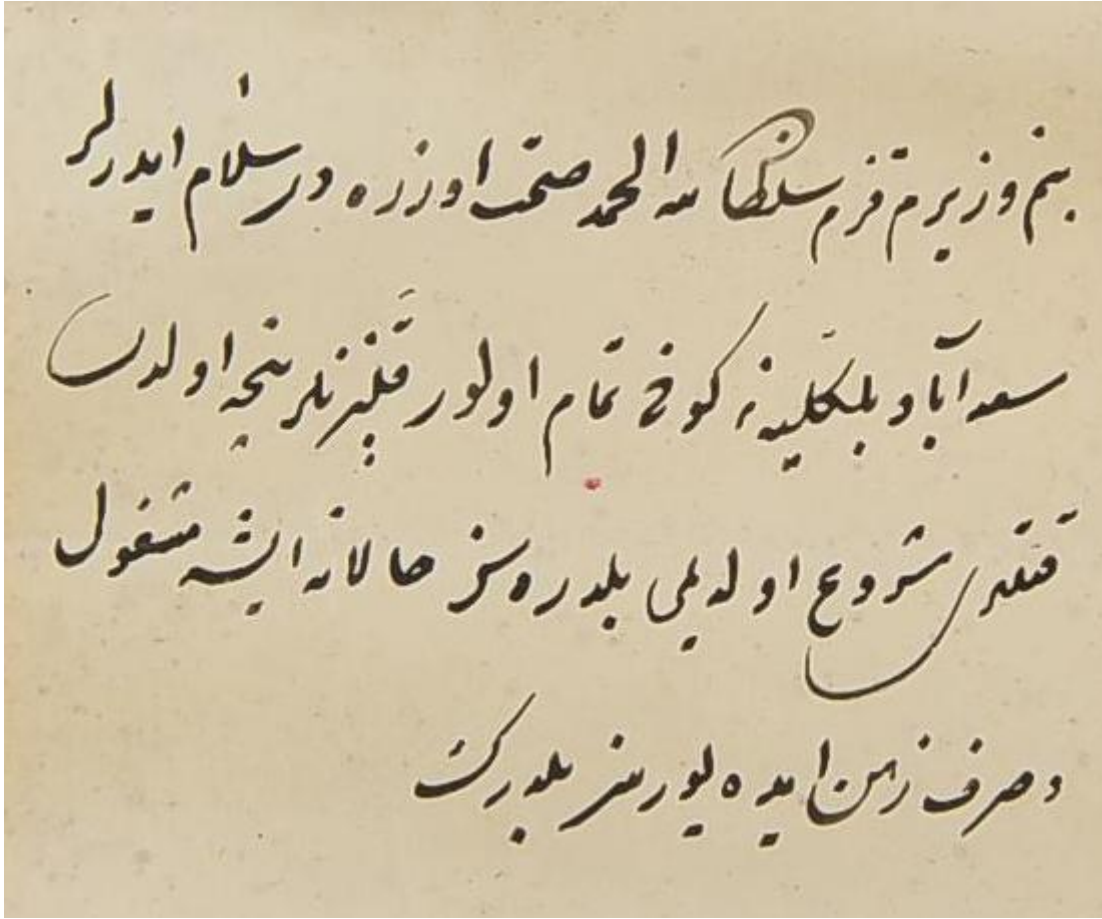 بنم وزيرم قزم سلطان لله الحمد صحت اوزره در سلام ايدرلر
سعد آباد كوخ تمام اولور نيجه اولدى
شروع اولديمى بلدره سز حالا نه ايشه مشغول
و صرف ذهن ايده يورسز بلدرك